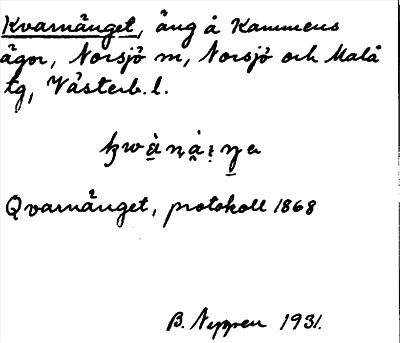 Kvarnänget, äng å Kammens
ägor, Norsjö sn, Norsjö och Malå
tg, Västerb. l.
Qvarnänget, protokoll 1868
B. Nyppen 1931.